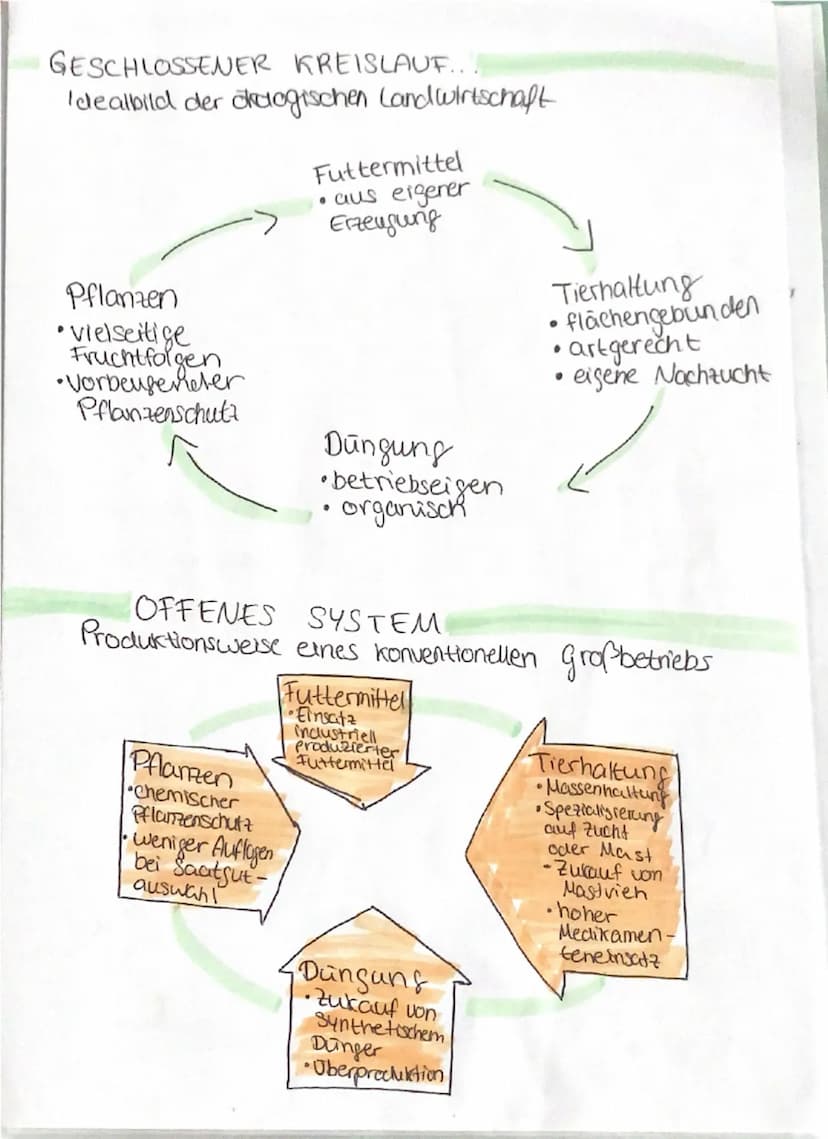 GESCHLOSSENER KREISLAUF...
Idealbild der ökologischen Landwirtschaft
Futtermittel
• aus eigener
Erzeugung
Tierhaltung
• flächengebunden
• artgerecht
• eigene Nachzucht
Düngung
• betriebseigen
• organisch
Pflanzen
• vielseitige
Fruchtfolgen
• vorbeugender
Pflanzenschutz
OFFENES SYSTEM
Produktionsweise eines konventionellen Großbetriebs
Futtermittel
• Einsatz
industriell
produzierter
Futtermittel
Tierhaltung
• Massenhaltung
• Spezialisierung
auf Zucht
oder Mast
- Zukauf von
Mastvieh
• hoher
Medikamen-
teneinsatz
Düngung
• Zukauf von
synthetischem
Dünger
• Überproduktion
Pflanzen
• chemischer
Pflanzenschutz
• weniger Auflagen
bei Saatgut-
auswahl